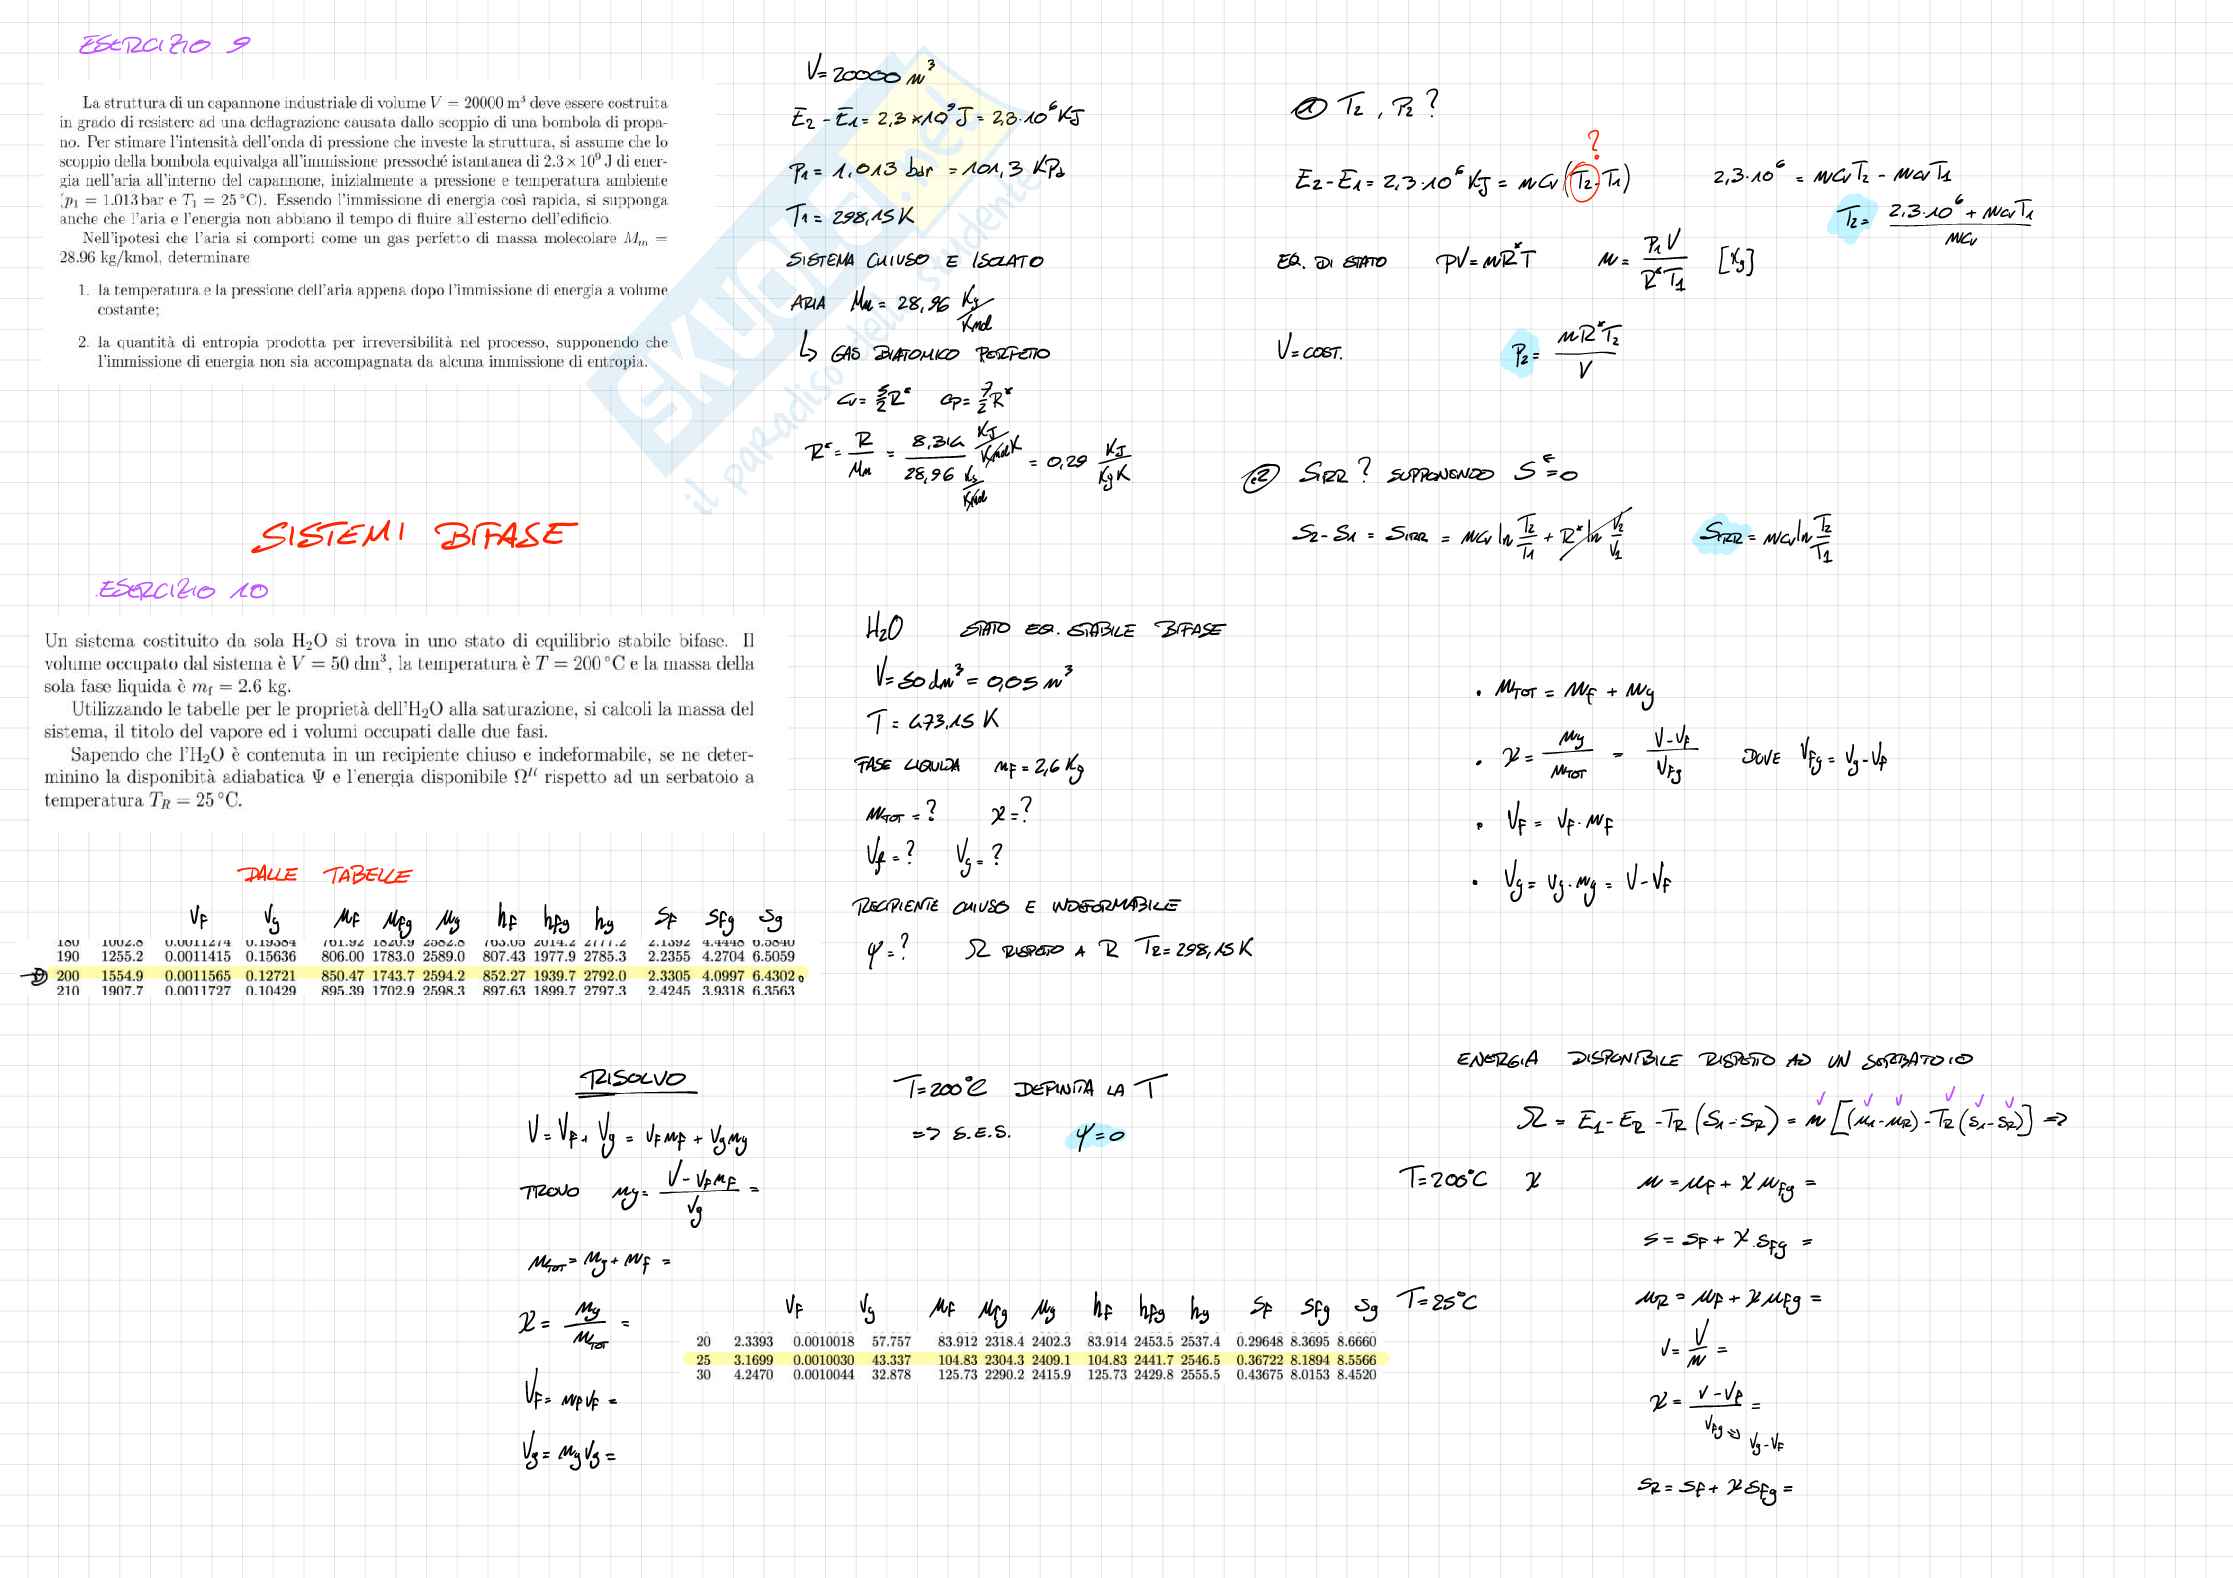 ESERCIZIO 9
La struttura di un capannone industriale di volume V = 20000 m³ deve essere costruita
in grado di resistere ad una deflagrazione causata dallo scoppio di una bombola di propa-
no. Per stimare l'intensità dell'onda di pressione che investe la struttura, si assume che lo
scoppio della bombola equivalga all'immissione pressoché istantanea di 2.3 × 10⁹ J di ener-
gia nell'aria all'interno del capannone, inizialmente a pressione e temperatura ambiente
(p₁ = 1.013 bar e T₁ = 25 °C). Essendo l'immissione di energia così rapida, si supponga
anche che l'aria e l'energia non abbiano il tempo di fluire all'esterno dell'edificio.
Nell'ipotesi che l'aria si comporti come un gas perfetto di massa molecolare Mₘ =
28.96 kg/kmol, determinare
1. la temperatura e la pressione dell'aria appena dopo l'immissione di energia a volume
costante;
2. la quantità di entropia prodotta per irreversibilità nel processo, supponendo che
l'immissione di energia non sia accompagnata da alcuna immissione di entropia.
V = 20000 m³
E₂ - E₁ = 2,3 × 10⁹ J = 2,3·10⁶ KJ
P₁ = 1,013 bar = 101,3 KPa
T₁ = 298,15 K
SISTEMA CHIUSO E ISOLATO
ARIA Mm = 28,96 Kg/Kmol
↳ GAS BIATOMICO PERFETTO
cv = 5/2 R* cp = 7/2 R*
R* = R/Mm = 8,314 KJ/KmolK / 28,96 Kg/Kmol = 0,29 KJ/KgK
① T₂, P₂ ?
?
E₂ - E₁ = 2,3·10⁶ KJ = mcv (T₂ - T₁) 2,3·10⁶ = mcvT₂ - mcvT₁
T₂ = (2,3·10⁶ + mcvT₁)/mcv
EQ. DI STATO PV = mR*T m = P₁V/R*T₁ [Kg]
V = COST. P₂ = mR*T₂/V
② SIRR ? SUPPONENDO S← = 0
S₂ - S₁ = SIRR = mcv ln T₂/T₁ + R* ln V₂/V₁ SIRR = mcv ln T₂/T₁
SKUOLA.net
il paradiso dello studente
SISTEMI BIFASE
ESERCIZIO 10
Un sistema costituito da sola H₂O si trova in uno stato di equilibrio stabile bifase. Il
volume occupato dal sistema è V = 50 dm³, la temperatura è T = 200 °C e la massa della
sola fase liquida è mf = 2.6 kg.
Utilizzando le tabelle per le proprietà dell'H₂O alla saturazione, si calcoli la massa del
sistema, il titolo del vapore ed i volumi occupati dalle due fasi.
Sapendo che l'H₂O è contenuta in un recipiente chiuso e indeformabile, se ne deter-
minino la disponibità adiabatica Ψ e l'energia disponibile Ωᴿ rispetto ad un serbatoio a
temperatura T_R = 25 °C.
H₂O STATO EQ. STABILE BIFASE
V = 50 dm³ = 0,05 m³
T = 473,15 K
FASE LIQUIDA mF = 2,6 Kg
mTOT = ? x = ?
Vf = ? Vg = ?
RECIPIENTE CHIUSO E INDEFORMABILE
ψ = ? Ω RISPETTO A R TR = 298,15 K
• mTOT = mF + mg
• x = mg/mTOT = V-VF/VFg DOVE VFg = Vg - VF
• VF = vF · mF
• Vg = vg · mg = V - VF
DALLE TABELLE
vF vg uF uFg ug hF hFg hg sF sFg sg
180 1002.8 0.0011274 0.19384 761.92 1820.9 2582.8 763.05 2014.2 2777.2 2.1392 4.4448 6.5840
190 1255.2 0.0011415 0.15636 806.00 1783.0 2589.0 807.43 1977.9 2785.3 2.2355 4.2704 6.5059
200 1554.9 0.0011565 0.12721 850.47 1743.7 2594.2 852.27 1939.7 2792.0 2.3305 4.0997 6.4302
210 1907.7 0.0011727 0.10429 895.39 1702.9 2598.3 897.63 1899.7 2797.3 2.4245 3.9318 6.3563
RISOLVO
V = VF + Vg = vFmF + vgmg
TROVO mg = (V - vFmF)/vg =
mTOT = mg + mF =
x = mg/mTOT =
VF = mFvF =
Vg = mgvg =
T = 200°C DEFINITA LA T
=> S.E.S. ψ = 0
ENERGIA DISPONIBILE RISPETTO AD UN SERBATOIO
Ω = E₁ - ER - TR (S₁ - SR) = m [(u₁ - uR) - TR (s₁ - sR)] =>
T = 200°C x u = uF + x uFg =
s = sF + x·sFg =
vF vg uF uFg ug hF hFg hg sF sFg sg
20 2.3393 0.0010018 57.757 83.912 2318.4 2402.3 83.914 2453.5 2537.4 0.29648 8.3695 8.6660
25 3.1699 0.0010030 43.337 104.83 2304.3 2409.1 104.83 2441.7 2546.5 0.36722 8.1894 8.5566
30 4.2470 0.0010044 32.878 125.73 2290.2 2415.9 125.73 2429.8 2555.5 0.43675 8.0153 8.4520
T = 25°C uR = uF + x uFg =
v = V/m =
x = (v - vF)/vFg => vg - vF =
sR = sF + x sFg =